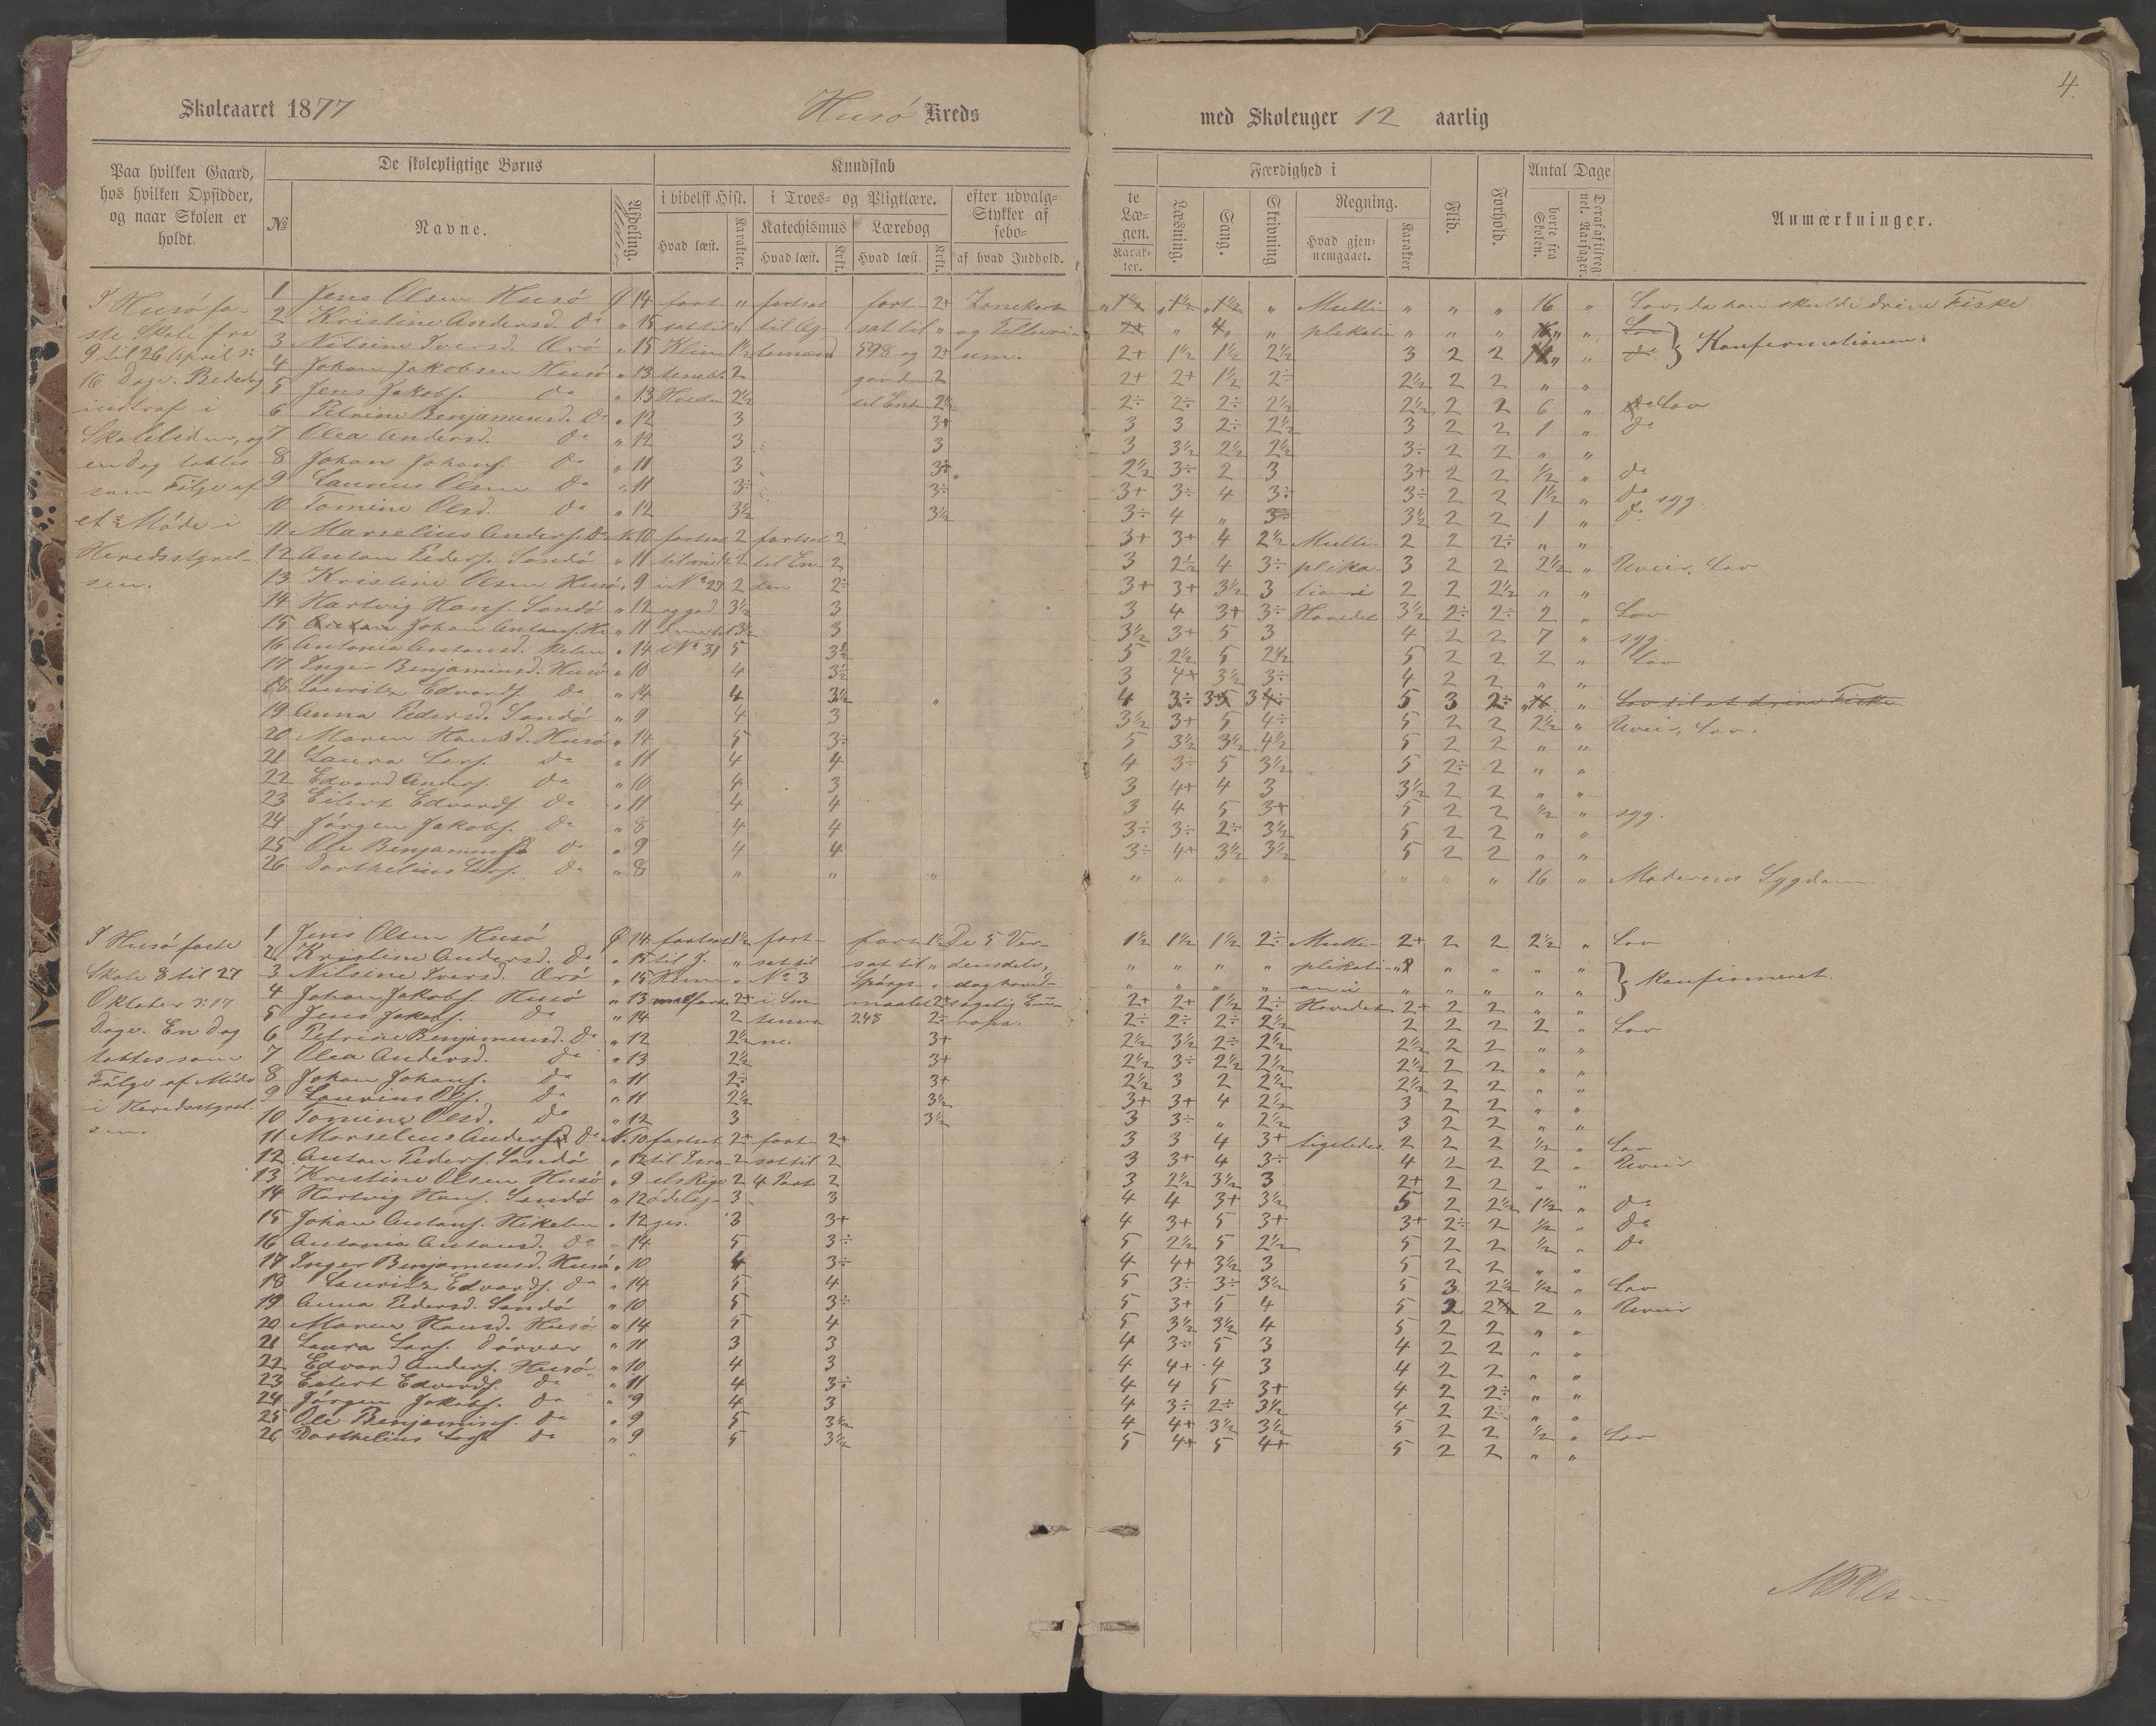 4.
Skoleaaret 1877 Husö Kreds med Skoleuger 12 aarlig
Paa hvilken Gaard, hos hvilken Opsidder, og naar Skolen er holdt.
De skolepligtige Børns
№ Navne. Afdeling. Alder
Kundskab
i bibelsk Hist. Hvad læst. Karakter.
i Troes- og Pligtlære.
Katechismus Hvad læst. Krkt.
Lærebog Hvad læst Krkt.
efter udvalgte Stykker af Læsebogen. af hvad Indhold. Karakter.
Færdighed i
Læsning. Sang. Skrivning
Regning. Hvad gjennemgaaet. Karakter
Flid. Forhold.
Antal Dage
borte fra Skolen.
Anmærkninger.
I Husö faste Skole fra 9 til 26 April ɔ: 16 Dage. Bededag indtraf i Skoletiden, og en Dag tabtes som Fölge af et Möde i Heredsstyrelsen.
1 Jens Olsen Husö Ø 14 fort " fortsat fort 2+ " " " " Multi " " " 16 " Lov, da han skulde drive Fiske
2 Kristine Andersd. do " 15 sat til " til sat til " og " " plikati " " " " "
3 Nilsine Iversd. Orö " 15 1½ 598 og 2+ 2+ 1½ 1½ 2½ 3 2 2 " " Konfirmationen.
4 Johan Jakobsen Husö " 13 2 2 2+ 2+ 1½ 2÷ 2½ 2 2 " "
5 Jens Jakobs. do " 13 2½ til Enden 2½ 2÷ 2÷ 2÷ 2½ 2½ 2 2 6 " Lov
6 Petrine Benjaminsd. do " 12 3 3+ 3 3 2÷ 2½ 3 2 2 1 " do
7 Olea Andersd. do " 12 3 3 3 3½ 2½ 2½ 3÷ 2 2 " "
8 Johan Johans. do " 11 3 3+ 2½ 3÷ 2 3 3+ 2 2 ½ " do
9 Laurius Olsen do " 11 3÷ 3÷ 3+ 3÷ 4 3÷ 3÷ 2 2 1½ " do syg.
10 Tomine Olsd. do " 12 3½ 3½ 3÷ 4 " 3÷ 3½ 2 2 1 " do
11 Marselius Anders. do N. 10 fortsat 2 fortsat 2 3+ 3+ 4 2½ Multi- 2 2 2÷ " "
12 Anton Peders. Sandö " 11 2 til En- 2 3 2½ 4 3÷ plika- 3 2 2 2½ " Uveir, Lov
13 Kristine Olsen Husö " 9 i No 23 2 den 2÷ 3+ 3+ 3½ 3 tion i 2 2 2½ " "
14 Hartvig Hans. Sandö " 12 3½ 3 3 4 3+ 3÷ Hovedet 3½ 2÷ 2÷ 2 " Lov
15 Johan Antons. " 11 3½ 3 3½ 3+ 5 3 4 2 2 7 " syg.
16 Antonia Antonsd. " 14 No 31 5 3½ 5 2½ 5 2½ 5 2 2 2 " Lov
17 Inger Benjaminsd. Husö " 10 4 3½ 3 4+ 3½ 3÷ 4 2 2 " "
18 Lauritz Edvards. do " 14 4 3½ " 4 3÷ 5 3 2÷ " Lov til at drive Fiske
19 Anna Pedersd. Sandö " 9 4 3 3½ 3+ 5 4÷ 5 2 2 2½ " Uveir, Lov.
20 Maren Hansd. Husö " 14 5 3÷ 5 3½ 3½ 4½ 5 2 2 " "
21 Laura Lars. do " 11 4 4 4 3÷ 5 3½ 5 2÷ 2 " "
22 Edvard Anders. do " 10 4 3 3 4+ 4 3 3½ 2 2 " "
23 Eilert Edvards. do " 11 4 4 3 4 5 3+ 5 2 2 ½ " syg.
24 Jörgen Jakobs. do " 8 4 4 3÷ 3÷ 2÷ 3½ 5 2 2 " "
25 Ole Benjamins. do " 9 4 4 3÷ 4+ 3½ 3½ 5 2 2 " "
26 Dorthelius Lars. do " 8 " " " " " " " " " 16 " Moderens Sygdom.
I Husö faste Skole 8 til 27 Oktober ɔ: 17 Dage. En Dag tabtes som Fölge af Möde i Heredsstyrelsen.
1 Jens Olsen Husö Ø 14 fortsat 1½ fort- fort- 1½ De 5 Ver- 1½ 1½ 1½ 2÷ Multi- 2+ 2 2 2½ " Lov
2 Kristine Andersd. do " 15 til " sat til sat til " densdele, " " " " plikati- " " " "
3 Nilsine Iversd. Orö " 15 " No 3 Spörgs- " dog hoved- " " " " on i " " " " " Konfirmeret.
4 Johan Jakobs. Husö " 13 2+ i maalet 2+ sagelig Eu- 2+ 2+ 1½ 2÷ Hovedet 2+ 2 2 " "
5 Jens Jakobs. do " 14 2 248 2÷ ropa. 2÷ 2÷ 2÷ 2½ 2 2 2 2 " Lov
6 Petrine Benjaminsd. do " 12 2½ 3+ 2½ 3½ 2÷ 2½ 2½ 2 2 " "
7 Olea Andersd. do " 13 2½ 3+ 2½ 3÷ 2½ 2½ 2½ 2 2 " "
8 Johan Johans. do " 11 2÷ 3+ 2½ 3 2 2½ 2½ 2 2 " "
9 Laurius Ols. do " 11 2½ 3½ 3+ 3+ 4 2½ 3 2 2 " "
10 Tomine Olsd. do " 12 3 3½ 3 3÷ " 2½ 3 2 2 " "
11 Marselius Anders. do N. 10 fortsat 2+ fort- 2+ 3 3 4 3+ ligeledes 2 2 2 ½ " Lov
12 Anton Peders. Sandö " 12 til Isra- 2 sat til 2 3 3+ 4 3÷ 4 2 2 2 " Uveir
13 Kristine Olsen Husö " 9 els Rige 2 4 Part 2 3 2½ 3½ 3 2+ 2 2 " "
14 Hartvig Hans. Sandö " 12 ödelæg- 3 3 4 4 3+ 3½ 5 2 2½ 1½ " do
15 Johan Antons. Hikelen " 12 ges. 3 3+ 4 3+ 5 3+ 3+ 2÷ 2 ½ " do
16 Antonia Antonsd. do " 14 5 3÷ 5 2½ 5 2½ 5 2 2 ½ " do
17 Inger Benjaminsd. Husö " 10 4 3÷ 4 4+ 3½ 3 5 2 2 " "
18 Lauritz Edvards. do " 14 5 4 5 3÷ 3÷ 3½ 5 3 2½ ½ " Lov
19 Anna Pedersd. Sandö " 10 5 3÷ 5 3+ 5 4 5 2 2 " Uveir
20 Maren Hansd. Husö " 14 5 4 5 3½ 3½ 4 5 2 2 " "
21 Laura Lars. Dörvær " 11 3 3 4 3÷ 5 3 4 2 2 " "
22 Edvard Anders. Husö " 10 4 3 4 4+ 4 3 4 2 2 " "
23 Eilert Edvards. do " 11 4 3÷ 4 4 5 3+ 4 2 2÷ " "
24 Jörgen Jakobs. do " 9 4 3 4 3÷ 2÷ 3½ 4 2 2 " "
25 Ole Benjamins. do " 9 5 3½ 4 4+ 3½ 3½ 5 2 2 ½ " Lov
26 Dorthelius Lars. do " 9 5 3½ 5 4+ 5 4+ 5 2 2 " "